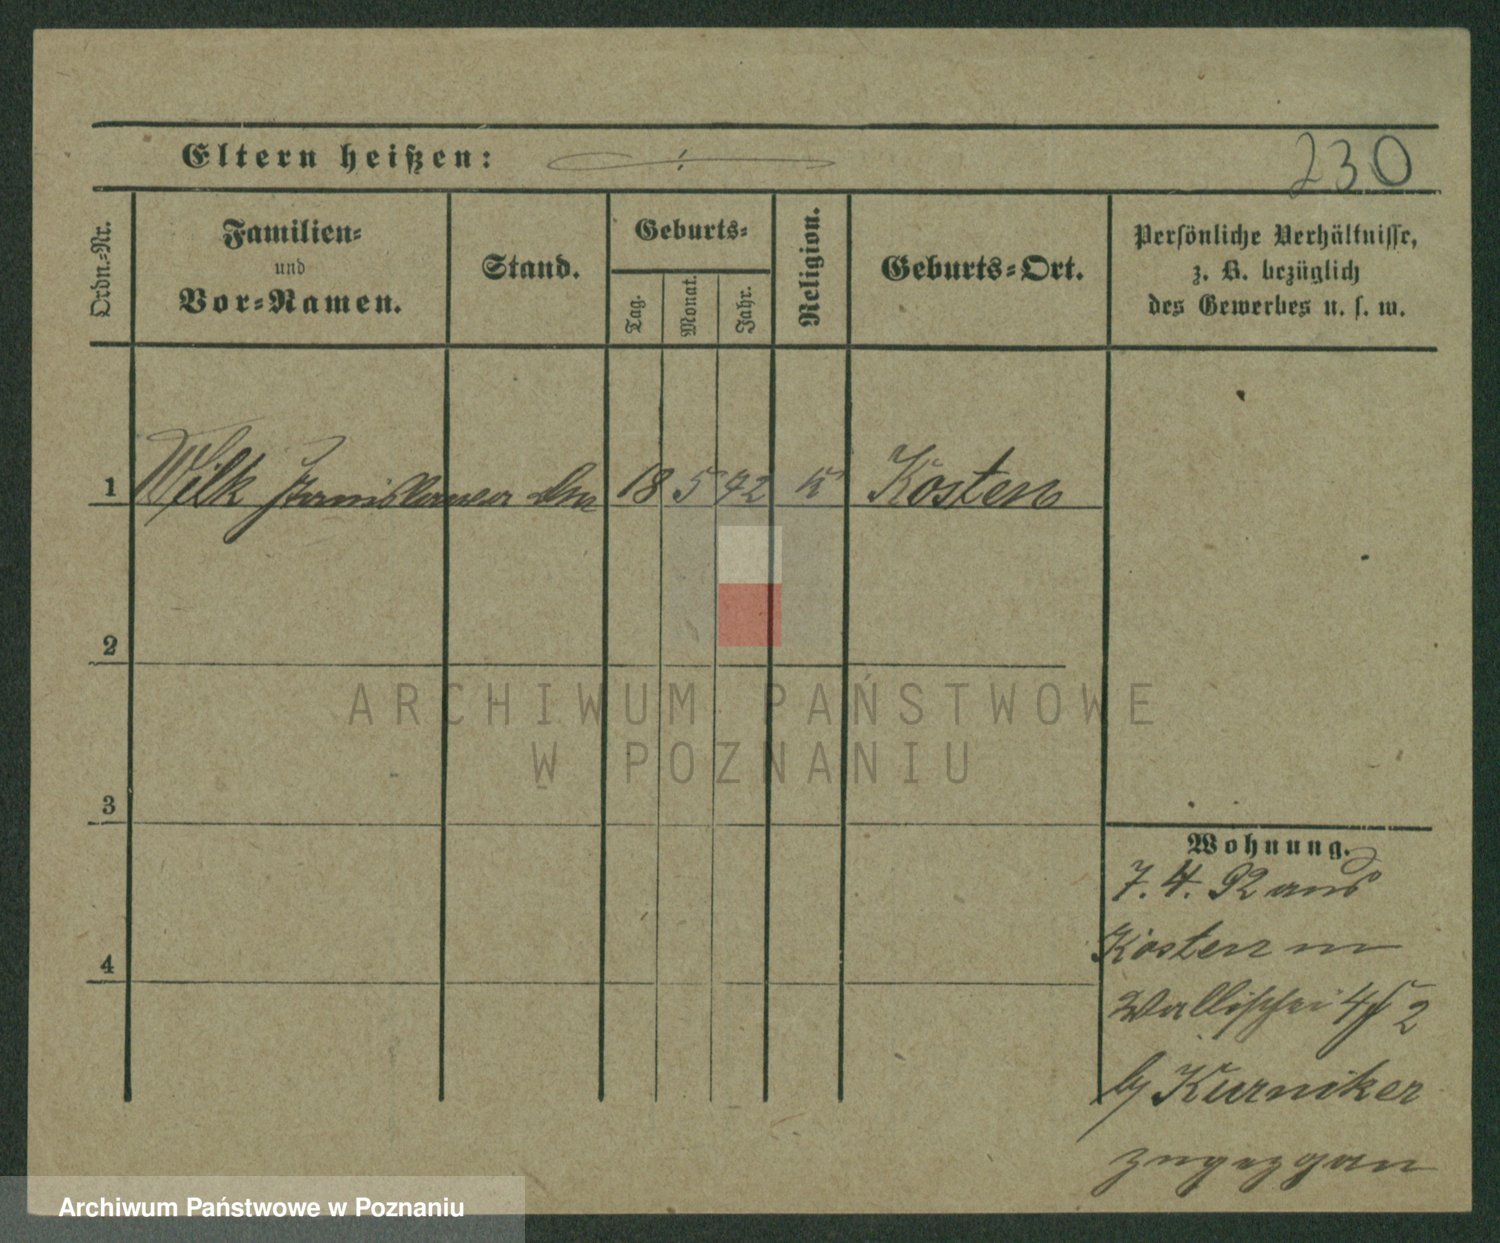 Eltern heißen:
230
Ordn.-Nr.
Familien-
und
Vor-Namen.
Stand.
Geburts-
Tag.
Monat.
Jahr.
Religion.
Geburts-Ort.
Persönliche Verhältnisse,
z. B. bezüglich
des Gewerbes u. s. w.
1 Wilk Stanislawa 18 5 72 K Kosten
2
ARCHIWUM PAŃSTWOWE
W POZNANIU
3
Wohnung.
7. 4. 92 aus
Kosten
Wallischei 2
b/ Kurniker
zugezogen
4
Archiwum Państwowe w Poznaniu